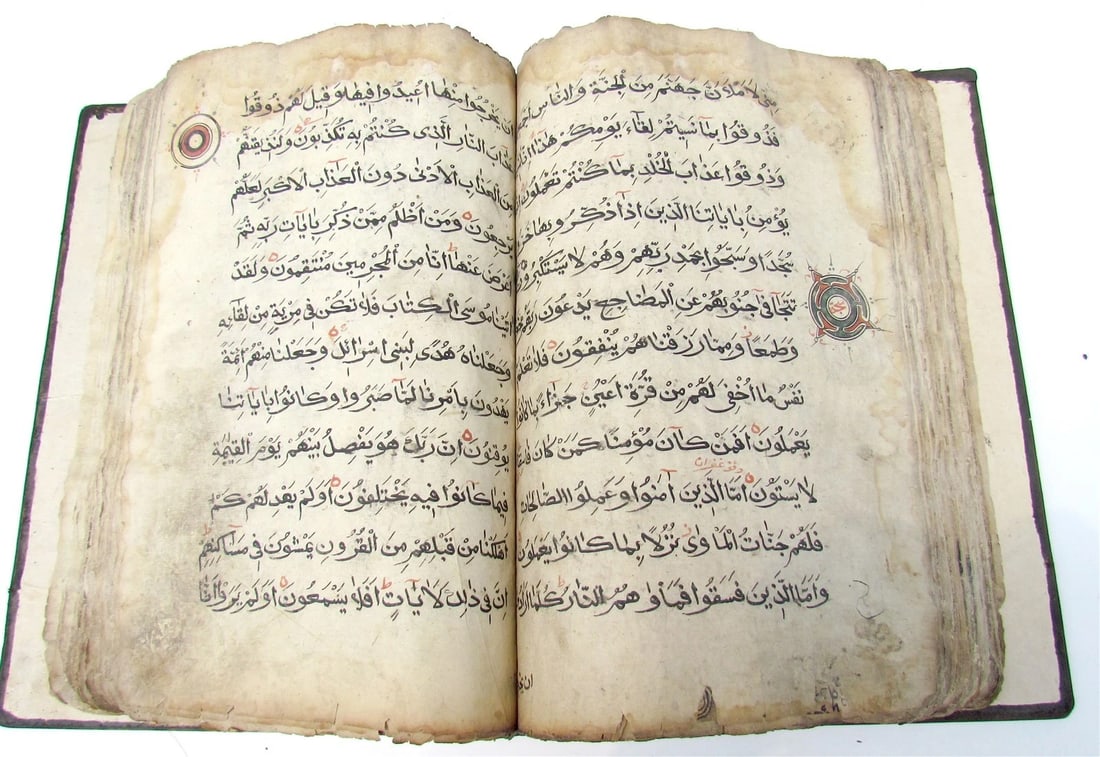 مِنِّى لَاَمْلَأَنَّ جَهَنَّمَ مِنَ الْجِنَّةِ وَالنَّاسِ
فَذُوقُوا بِمَا نَسِيتُمْ لِقَآءَ يَوْمِكُمْ هٰذَا
وَذُوقُوا عَذَابَ الْخُلْدِ بِمَا كُنْتُمْ تَعْمَلُونَ
يُؤْمِنُ بِاٰيَاتِنَا الَّذِينَ اِذَا ذُكِّرُوا بِهَا
سُجَّدًا وَسَبَّحُوا بِحَمْدِ رَبِّهِمْ وَهُمْ لَا يَسْتَكْبِرُونَ
تَتَجَافٰى جُنُوبُهُمْ عَنِ الْمَضَاجِعِ يَدْعُونَ رَبَّهُمْ
وَطَمَعًا وَمِمَّا رَزَقْنَاهُمْ يُنْفِقُونَ فَلَا تَعْلَمُ
نَفْسٌ مَا اُخْفِىَ لَهُمْ مِنْ قُرَّةِ اَعْيُنٍ جَزَآءً بِمَا كَانُوا
يَعْمَلُونَ اَفَمَنْ كَانَ مُؤْمِنًا كَمَنْ كَانَ
وقف غفران
لَا يَسْتَوُنَ اَمَّا الَّذِينَ اٰمَنُوا وَعَمِلُوا الصَّالِحَاتِ
فَلَهُمْ جَنَّاتُ الْمَأْوٰى نُزُلًا بِمَا كَانُوا يَعْمَلُونَ
وَاَمَّا الَّذِينَ فَسَقُوا فَمَأْوٰهُمُ النَّارُ كُلَّمَا
اَنْ يَخْرُجُوا مِنْهَا اُعِيدُوا فِيهَا وَقِيلَ لَهُمْ ذُوقُوا
عَذَابَ النَّارِ الَّذِى كُنْتُمْ بِهِ تُكَذِّبُونَ وَلَنُذِيقَنَّهُمْ
مِنَ الْعَذَابِ الْاَدْنٰى دُونَ الْعَذَابِ الْاَكْبَرِ لَعَلَّهُمْ
يَرْجِعُونَ وَمَنْ اَظْلَمُ مِمَّنْ ذُكِّرَ بِاٰيَاتِ رَبِّهِ ثُمَّ
اَعْرَضَ عَنْهَا اِنَّا مِنَ الْمُجْرِمِينَ مُنْتَقِمُونَ وَلَقَدْ
اٰتَيْنَا مُوسَى الْكِتَابَ فَلَا تَكُنْ فِى مِرْيَةٍ مِنْ لِقَآئِهِ
وَجَعَلْنَاهُ هُدًى لِبَنِى اِسْرَآئِلَ وَجَعَلْنَا مِنْهُمْ اَئِمَّةً
يَهْدُونَ بِاَمْرِنَا لَمَّا صَبَرُوا وَكَانُوا بِاٰيَاتِنَا
يُوقِنُونَ اِنَّ رَبَّكَ هُوَ يَفْصِلُ بَيْنَهُمْ يَوْمَ الْقِيٰمَةِ
فِيمَا كَانُوا فِيهِ يَخْتَلِفُونَ اَوَلَمْ يَهْدِ لَهُمْ كَمْ
اَهْلَكْنَا مِنْ قَبْلِهِمْ مِنَ الْقُرُونِ يَمْشُونَ فِى مَسَاكِنِهِمْ
اِنَّ فِى ذٰلِكَ لَاٰيَاتٍ اَفَلَا يَسْمَعُونَ اَوَلَمْ يَرَوْا اَنَّا